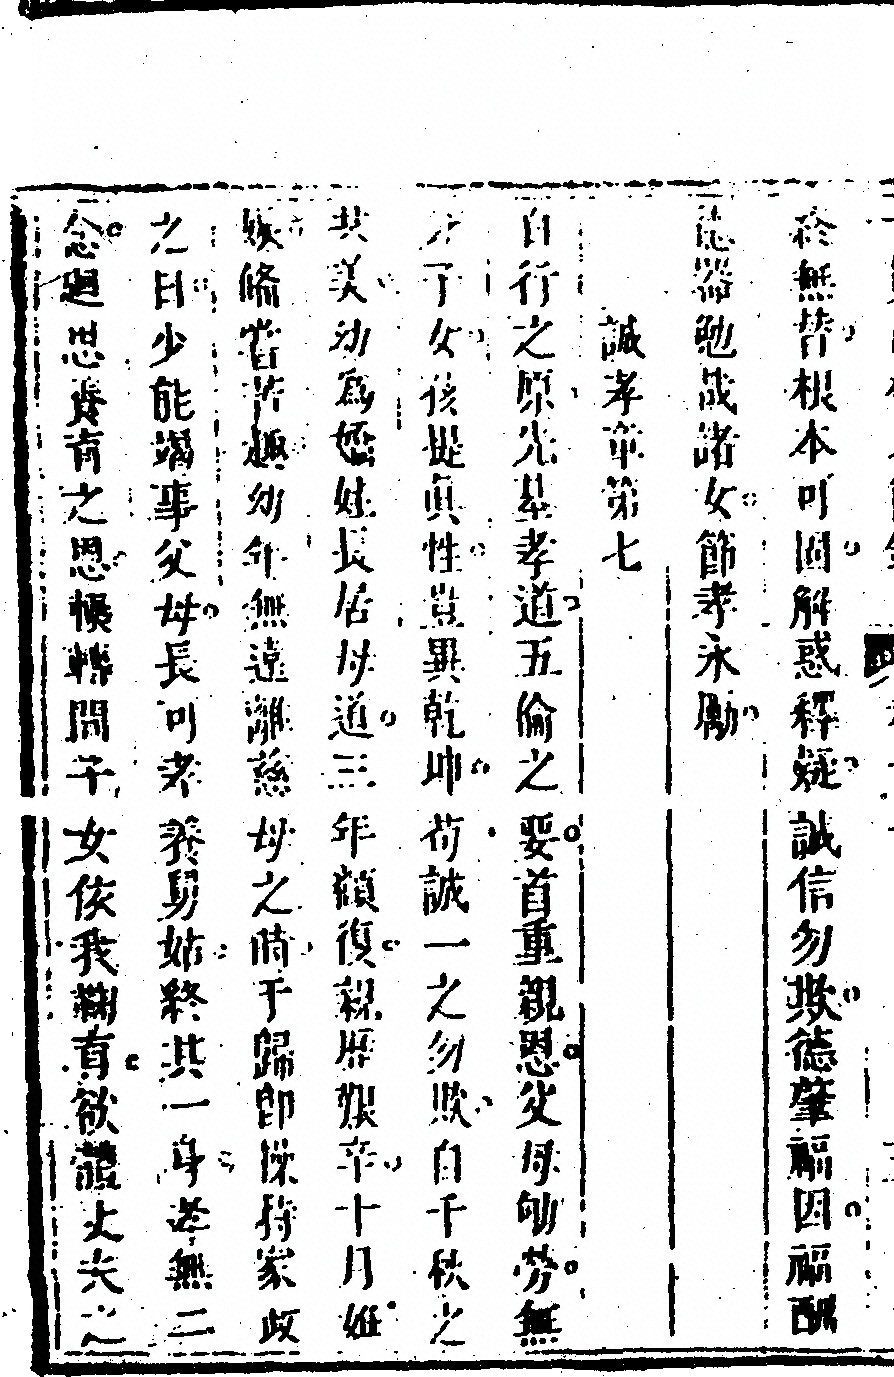 終無替根本可固解惑釋疑誠信勿欺德肇福因福酬
德器勉哉諸女節孝永勵
誠孝章第七
百行之原先基孝道五倫之要首重親恩父母劬勞無
分子女孩提真性豈異乾坤荷誠一之勿欺自千秋之
共美幼為嬌娃長居母道三年顧復親歷艱辛十月
備嘗苦趣幼年無遠離慈母之時于歸即操持家政
之日少能竭事父母長可孝養舅姑終其一身孝無二
念迴思養育之恩轉問子女依我鞠育欲丈夫之